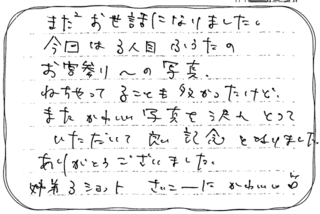 また²お世話になりました。
今回は3人目 ふうたの
お宮参りへの写真。
ねちゃってることも多かったけど、
またかわいい写真を沢山とって
いただいて良い記念となりました
ありがとうございました。
姉弟3ショット さいこーにかわいい